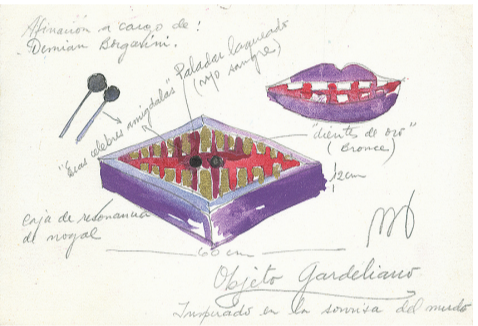 Afinación a cargo de:
Demian Bogarini.
Paladar laqueado
(rojo sangre)
"Esas célebres amígdalas"
"dientes de oro"
(bronce)
12cm
caja de resonancia
de nogal
60 cm
Objeto Gardeliano
Inspirado en la sonrisa del mudo